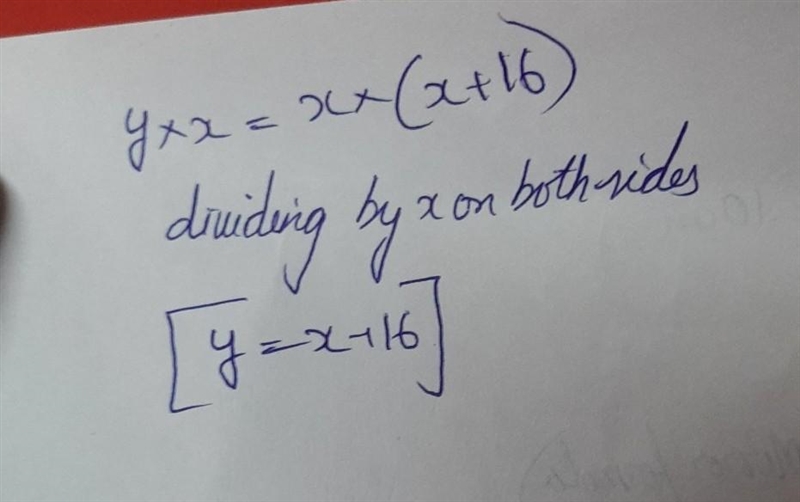 y × x = x × (x + 16)
dividing by x on both sides
[y = x + 16]